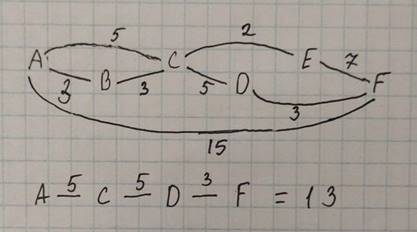 5 2
A C E 7
3 B 3 5 D F
3
15
A 5 C 5 D 3 F = 13